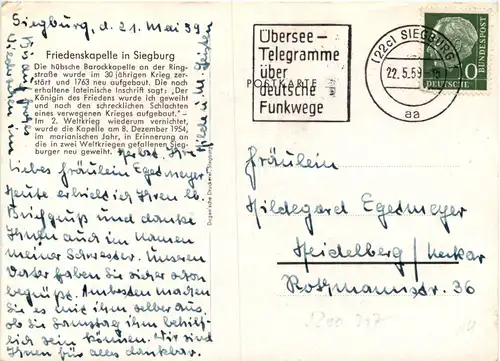 Siegburg, d. 21. Mai 59.
Friedenskapelle in Siegburg
Die hübsche Barockkapelle an der Ring-
straße wurde im 30jährigen Krieg zer-
stört und 1763 neu aufgebaut. Die noch
erhaltene lateinische Inschrift sagt: „Der
Königin des Friedens wurde ich geweiht
und nach den schrecklichen Schlachten
eines verwegenen Krieges aufgebaut." –
Im 2. Weltkrieg wiederum vernichtet,
wurde die Kapelle am 8. Dezember 1954,
im marianischen Jahr, in Erinnerung an
die in zwei Weltkriegen gefallenen Sieg-
burger neu geweiht.
Liebes Fräulein Egetmeyer
Heute erhielt ich Ihren lb.
Brief und danke
Ihnen auch im Namen
meiner Schwester. Unseren
Vater haben Sie sicher schon
begrüßt. Am besten machen
Sie es mit ihm selber aus,
ob Sie Samstag ihm behilf-
lich sein können. Wir sind
Ihnen für alles dankbar.
Herzl. Ihre
Hilde u. M.
Übersee –
Telegramme
über
deutsche
Funkwege
POSTKARTE
(22c) SIEGBURG
22.5.59
aa
DEUTSCHE BUNDESPOST
10
Fräulein
Hildegard Egetmeyer
Heidelberg / Neckar
Rohrmannstr. 36